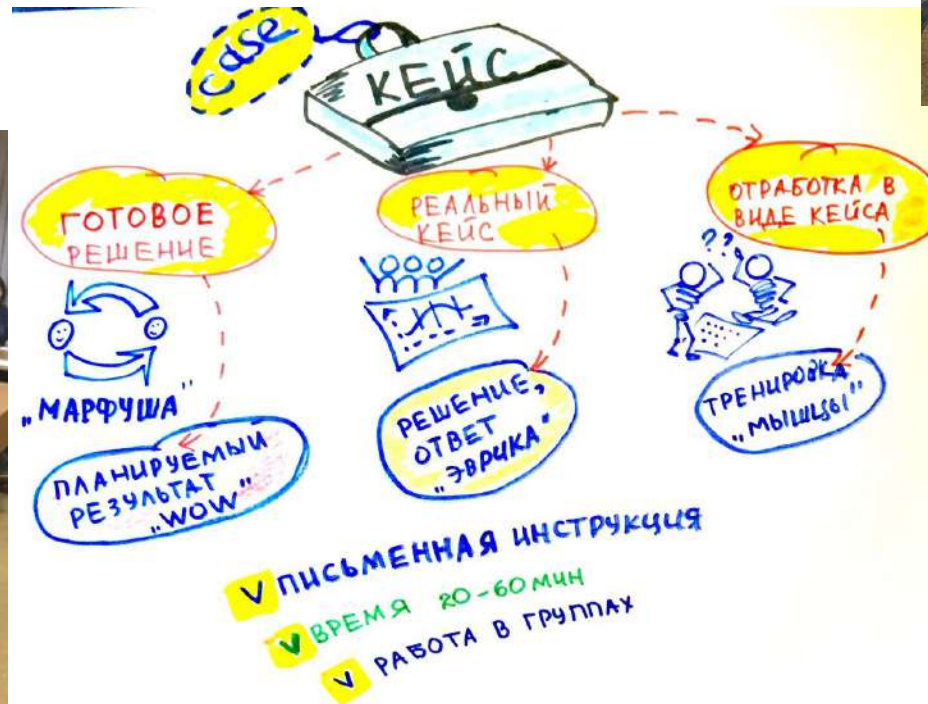 case
КЕЙС
ГОТОВОЕ
РЕШЕНИЕ
РЕАЛЬНЫЙ
КЕЙС
ОТРАБОТКА В
ВИДЕ КЕЙСА
??
„МАРФУША"
ПЛАНИРУЕМЫЙ
РЕЗУЛЬТАТ
„WOW"
РЕШЕНИЕ,
ОТВЕТ
„ЭВРИКА"
ТРЕНИРОВКА
„МЫШЦЫ"
V ПИСЬМЕННАЯ ИНСТРУКЦИЯ
V ВРЕМЯ 20-60 МИН
V РАБОТА В ГРУППАХ